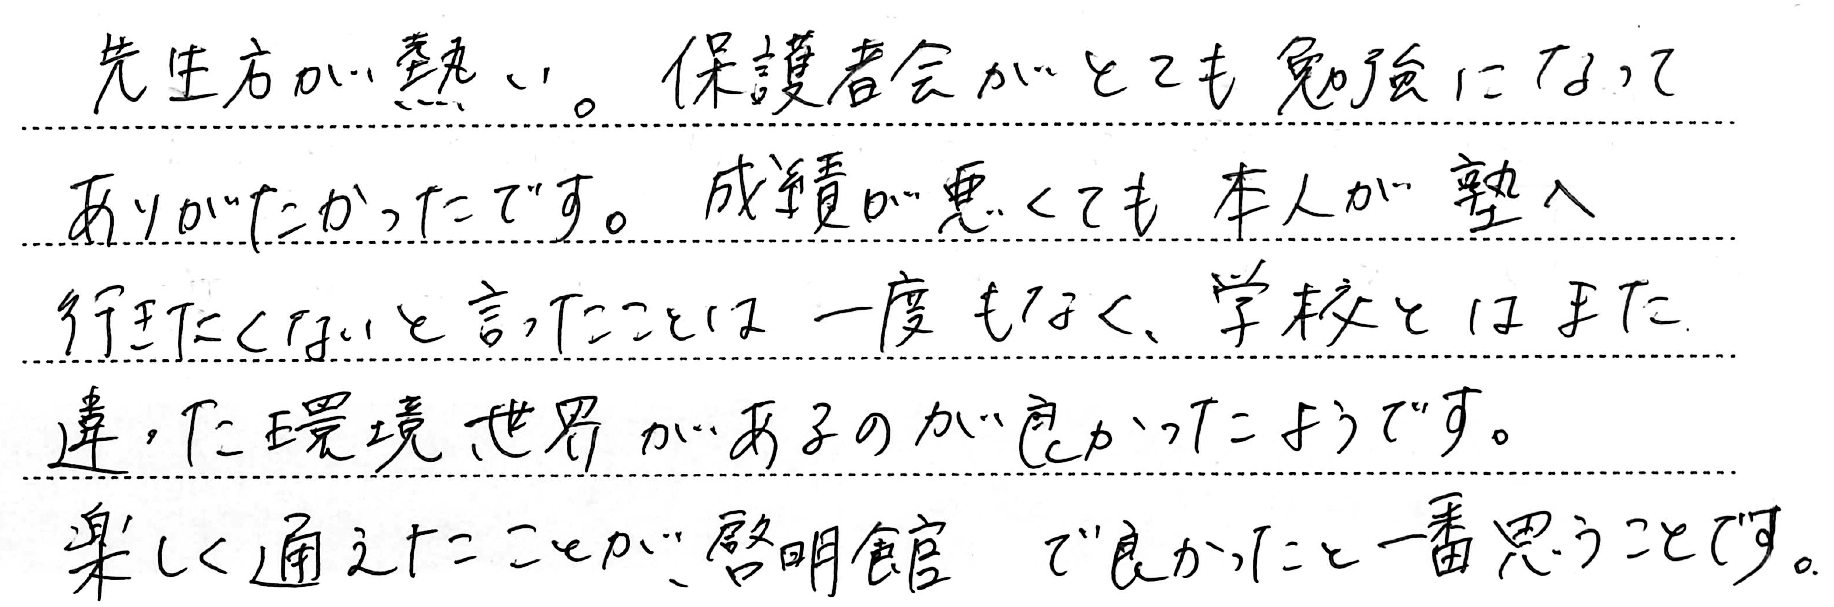 先生方が熱い。保護者会がとても勉強になって
ありがたかったです。成績が悪くても本人が塾へ
行きたくないと言ったことは一度もなく、学校とはまた
違った環境、世界があるのが良かったようです。
楽しく通えたことが、啓明館 で良かったと一番思うことです。